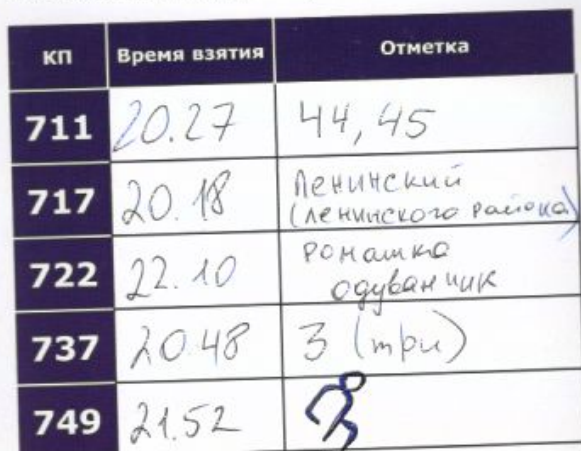 КП Время взятия Отметка
711 20.27 44, 45
717 20.18 Ленинский
(Ленинского района)
722 22.10 Ромашка
одуванчик
737 20.48 3 (три)
749 21.52